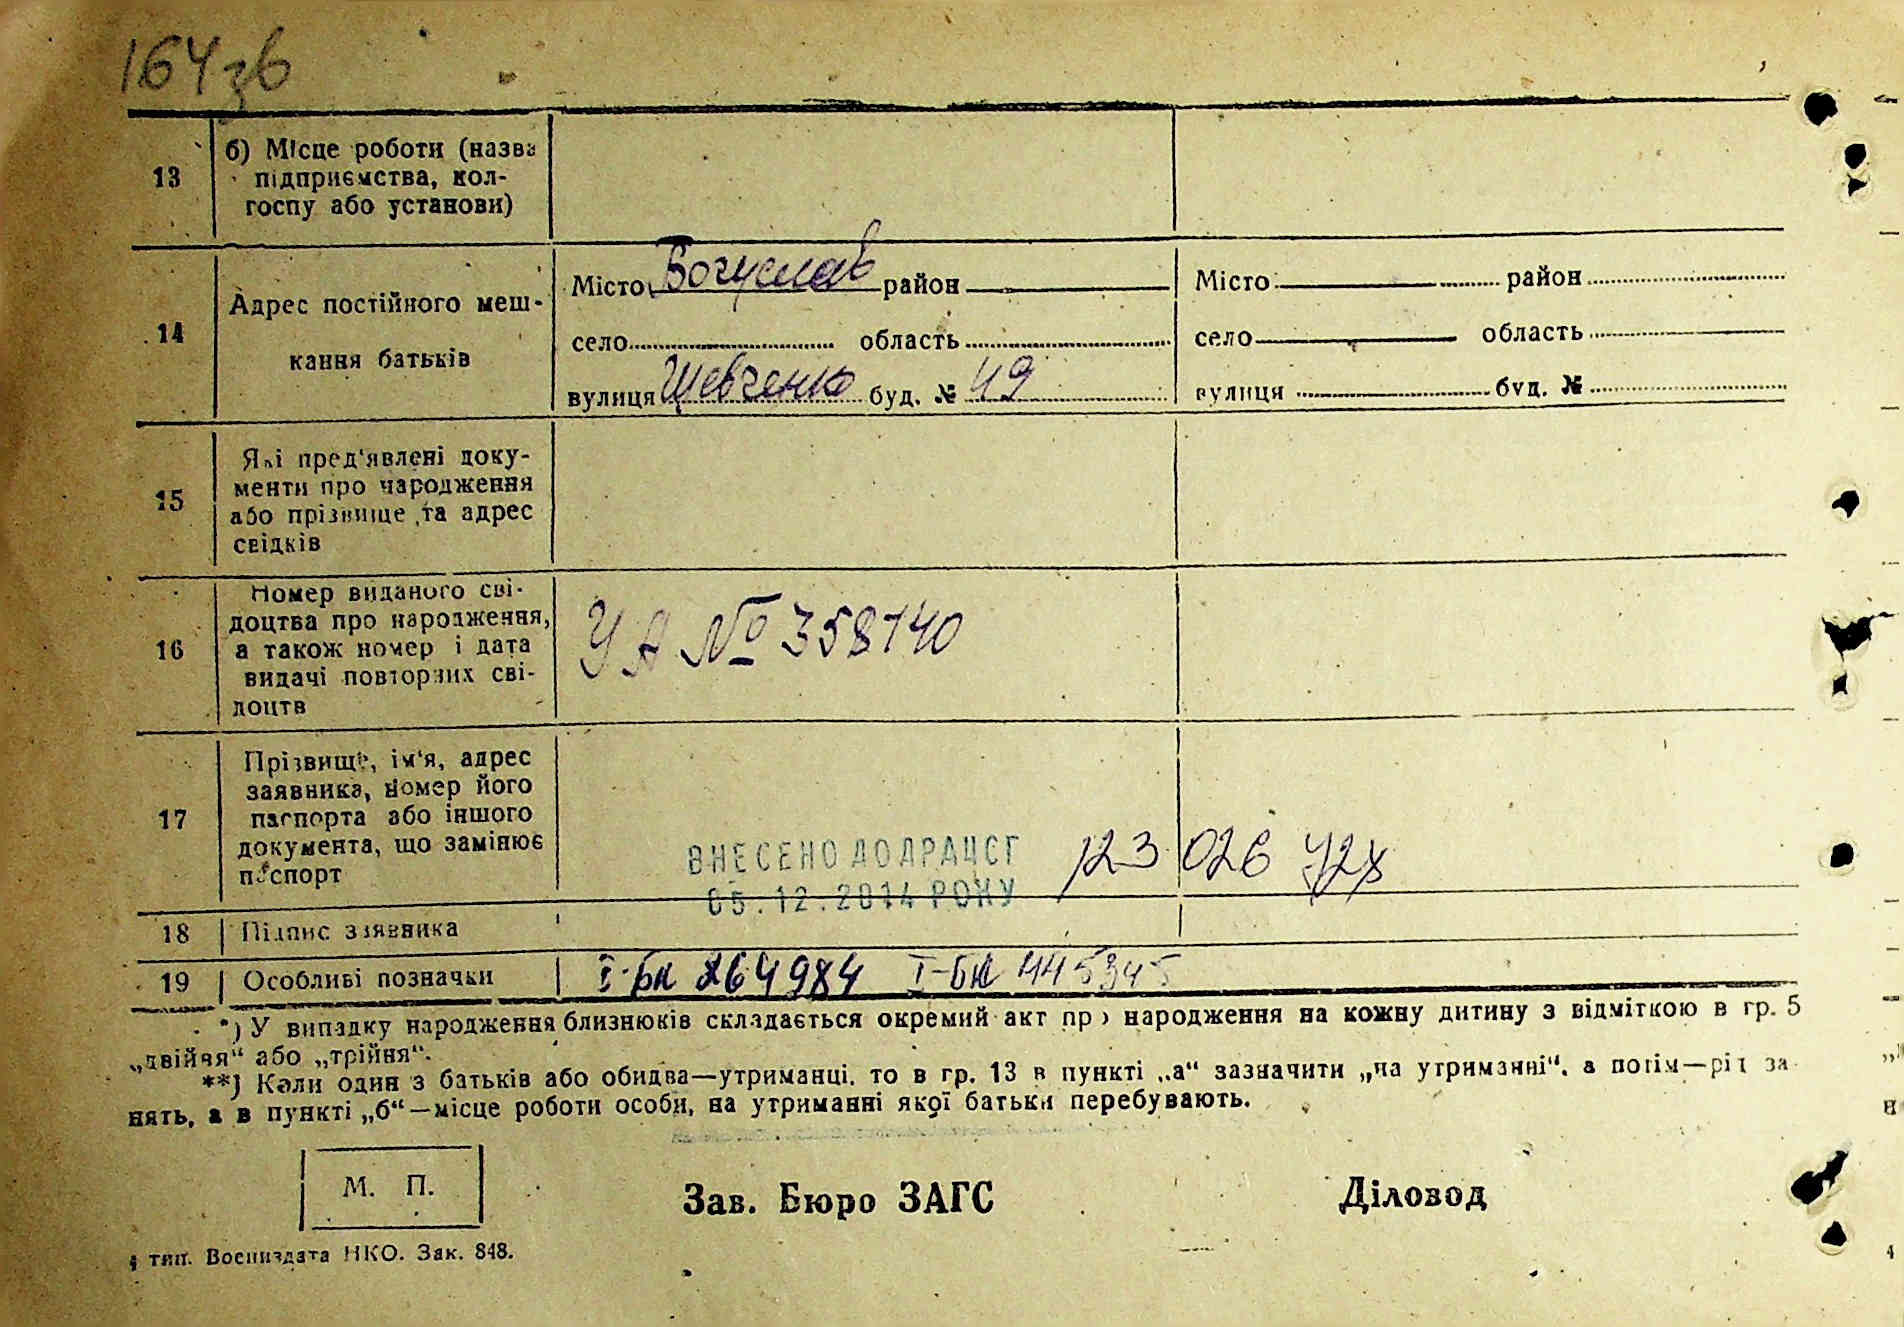 164зв
13 б) Місце роботи (назва
підприємства, кол-
госпу або установи)
14 Адрес постійного меш-
кання батьків
Місто Богуслав район Місто район
село область село область
вулиця Шевченко буд. № 49 вулиця буд. №
15 Які пред'явлені доку-
менти про народження
або прізвище та адрес
свідків
16 Номер виданого сві-
доцтва про народження,
а також номер і дата
видачі повторних сві-
доцтв
УА № 358140
17 Прізвище, ім'я, адрес
заявника, номер його
паспорта або іншого
документа, що замінює
паспорт
ВНЕСЕНО ДО ДРАЦСГ 123 026
05.12.2014 РОКУ
18 Підпис заявника
19 Особливі позначки І-БК 264984 І-БК 445345
*) У випадку народження близнюків складається окремий акт про народження на кожну дитину з відміткою в гр. 5
„двійня“ або „трійня“.
**) Коли один з батьків або обидва—утриманці, то в гр. 13 в пункті „а“ зазначити „на утриманні“, а потім—рід за-
нять, а в пункті „б“—місце роботи особи, на утриманні якої батьки перебувають.
М. П.
Зав. Бюро ЗАГС Діловод
4 тип. Воениздата НКО. Зак. 848.